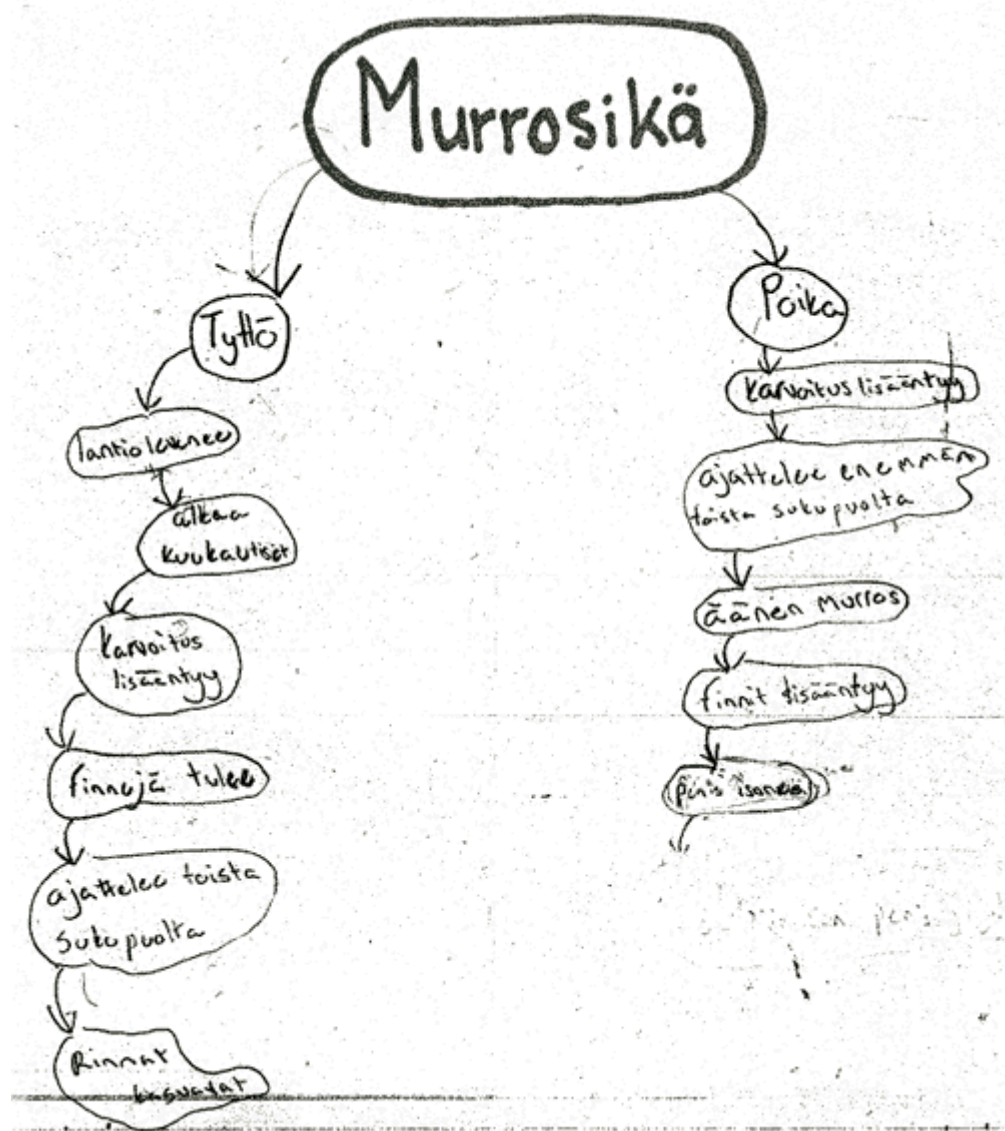 Murrosikä
Tyttö
lantio levenee
alkaa
kuukautiset
karvoitus
lisääntyy
finnejä tulee
ajattelee toista
sukupuolta
Rinnat
kasvavat
Poika
karvoitus lisääntyy
ajattelee enemmän
toista sukupuolta
äänen murros
finnit lisääntyy
penis isonee